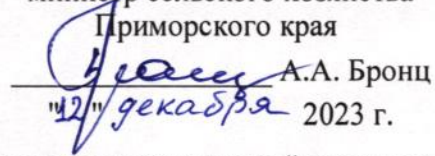 Приморского края
А.А. Бронц
"12" декабря 2023 г.